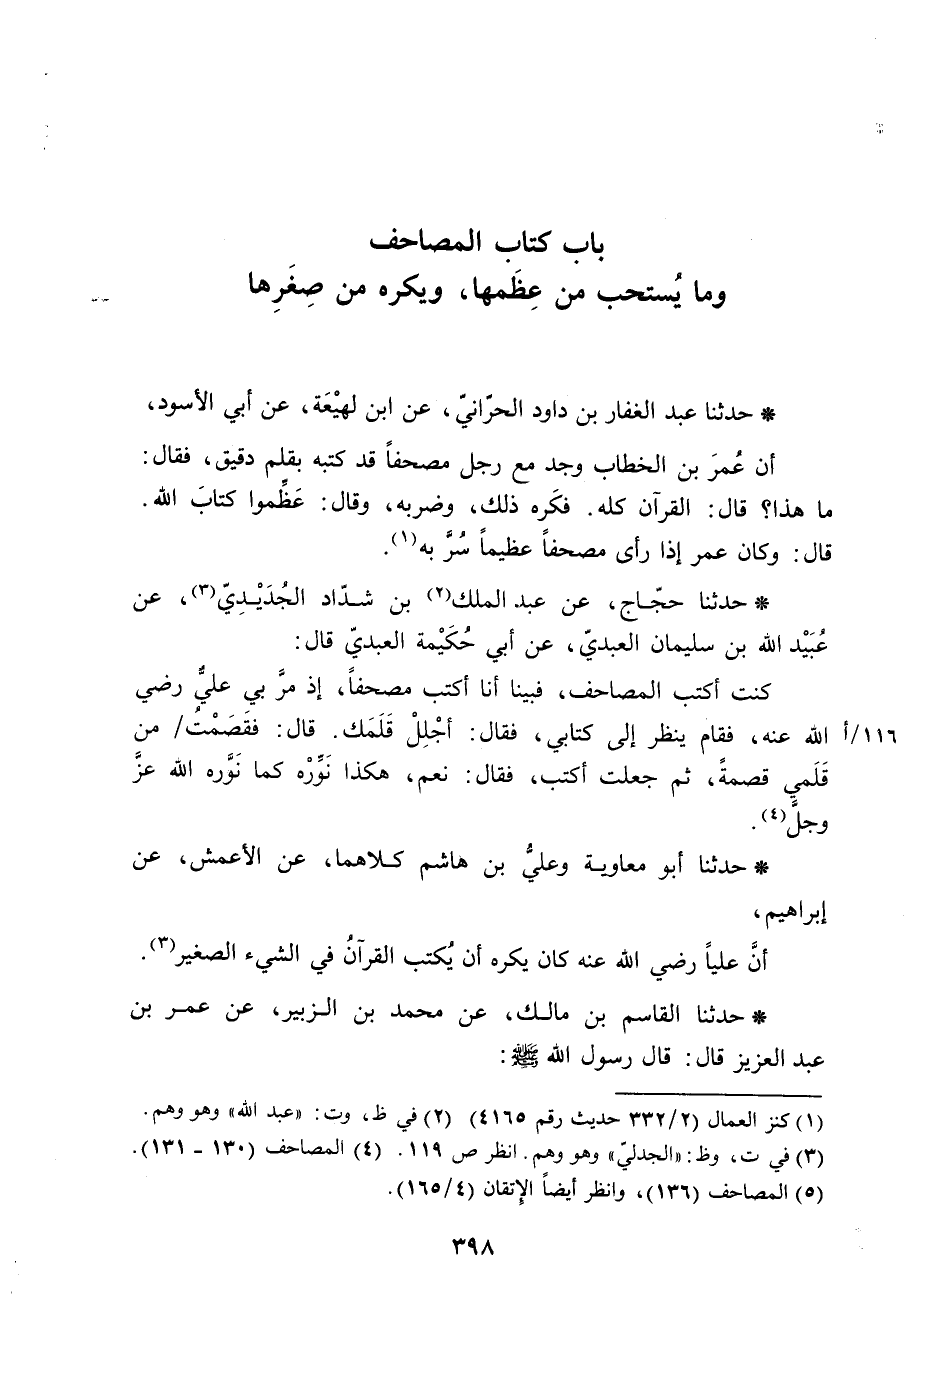 باب كتاب المصاحف
وما يُستحب من عِظَمها، ويكره من صِغَرِها
* حدثنا عبد الغفار بن داود الحرّانيّ، عن ابن لهيْعَة، عن أبي الأسود،
أن عُمرَ بن الخطاب وجد مع رجل مصحفاً قد كتبه بقلم دقيق، فقال:
ما هذا؟ قال: القرآن كله. فكَره ذلك، وضربه، وقال: عَظِّموا كتابَ الله.
قال: وكان عمر إذا رأى مصحفاً عظيماً سُرَّ به(١).
* حدثنا حجّاج، عن عبد الملك(٢) بن شدّاد الجُدَيْديّ(٣)، عن
عُبَيْد الله بن سليمان العبديّ، عن أبي حُكَيْمة العبديّ قال:
كنت أكتب المصاحف، فبينا أنا أكتب مصحفاً، إذ مرَّ بي عليٌّ رضي
١١٦/أ الله عنه، فقام ينظر إلى كتابي، فقال: أجْلِلْ قَلَمَك. قال: فقَصَمْتُ/ من
قَلَمي قصمةً، ثم جعلت أكتب، فقال: نعم، هكذا نَوِّرْه كما نَوَّره الله عزَّ
وجلَّ(٤).
* حدثنا أبو معاوية وعليُّ بن هاشم كلاهما، عن الأعمش، عن
إبراهيم،
أنَّ علياً رضي الله عنه كان يكره أن يُكتب القرآنُ في الشيء الصغير(٣).
* حدثنا القاسم بن مالك، عن محمد بن الزبير، عن عمر بن
عبد العزيز قال: قال رسول الله ﷺ:
(١) كنز العمال (٣٣٢/٢ حديث رقم ٤١٦٥) (٢) في ظ، وت: «عبد الله» وهو وهم.
(٣) في ت، وظ: «الجدليّ» وهو وهم. انظر ص ١١٩. (٤) المصاحف (١٣٠ ـ ١٣١).
(٥) المصاحف (١٣٦)، وانظر أيضاً الإتقان (١٦٥/٤).
٣٩٨